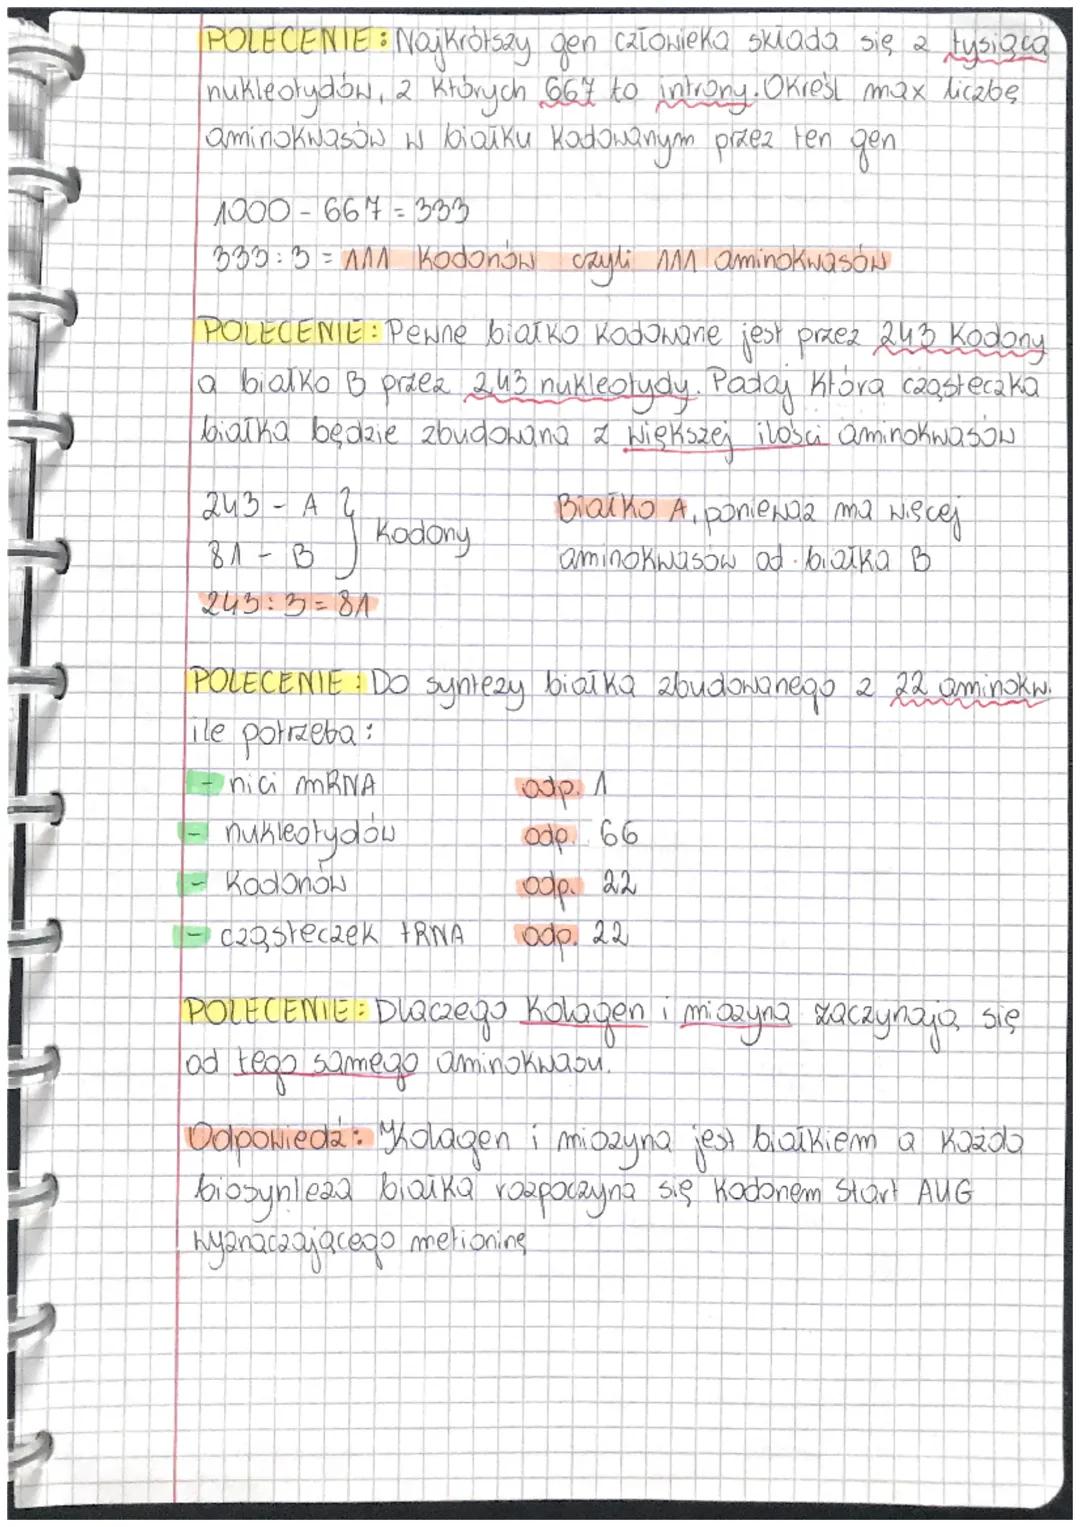 POLECENIE: Najkrótszy gen człowieka składa się z tysiąca
nukleotydów, z których 667 to introny. Określ max liczbę
aminokwasów w białku kodowanym przez ten gen
1000 - 667 = 333
333 : 3 = 111 kodonów czyli 111 aminokwasów
POLECENIE: Pewne białko kodowane jest przez 243 kodony
a białko B przez 243 nukleotydy. Podaj która cząsteczka
białka będzie zbudowana z większej ilości aminokwasów
243 - A
81 - B
kodony
Białko A, ponieważ ma więcej
aminokwasów od białka B
243 : 3 = 81
POLECENIE: Do syntezy białka zbudowanego z 22 aminokw.
ile potrzeba:
- nici mRNA odp. 1
- nukleotydów odp. 66
- kodonów odp. 22
- cząsteczek tRNA odp. 22
POLECENIE: Dlaczego kolagen i miozyna zaczynają się
od tego samego aminokwasu.
Odpowiedź: Kolagen i miozyna jest białkiem a każda
biosynteza białka rozpoczyna się kodonem start AUG
wyznaczającego metioninę